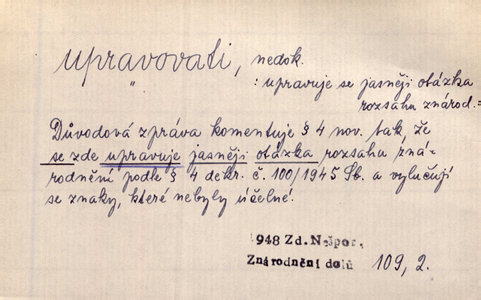 upravovati, nedok.
: upravuje se jasněji otázka
rozsahu znárod.=
Důvodová zpráva komentuje § 4 nov. tak, že
se zde upravuje jasněji otázka rozsahu zná-
rodnění podle § 4 dekr. č. 100/1945 Sb. a vylučují
se znaky, které nebyly účelné.
1948 Zd. Nešpor,
Znárodnění dolů 109, 2.